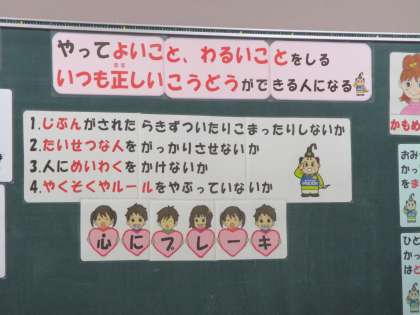 やってよいこと、わるいことをしる
いつも正しいこうどうができる人になる
1.じぶんがされたらきずついたりこまったりしないか
2.たいせつな人をがっかりさせないか
3.人にめいわくをかけないか
4.やくそくやルールをやぶっていないか
心にブレーキ
かもめ
おみ
かっ
をま
ひと
かっ
はと